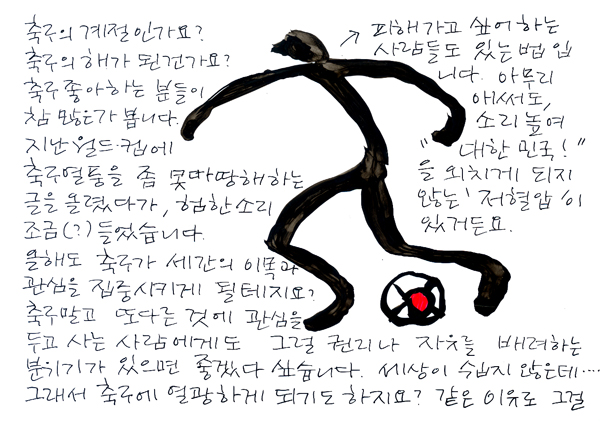 축구의 계절인가요?
축구의 해가 된건가요?
축구 좋아하는 분들이
참 많은가 봅니다.
지난 월드컵에
축구열풍을 좀 못마땅해하는
글을 올렸다가, 험한소리
조금(?) 들었습니다.
올해도 축구가 세간의 이목과
관심을 집중시키게 될테지요?
축구말고 또다른 것에 관심을
두고 사는 사람에게도 그럴 권리나 자유를 배려하는
분위기가 있으면 좋겠다 싶습니다. 세상이 수납지 않은데····
그래서 축구에 열광하게 되기도 하지요? 같은 이유로 그걸
↗ 피해가고 싶어하는
사람들도 있는 법입
니다. 아무리
애써도,
소리 높여
"대한민국!"
을 외치게 되지
않는 '저혈압'이
있거든요.